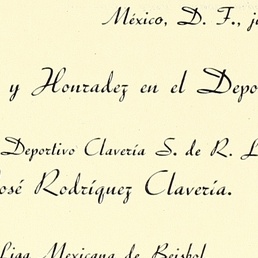 México, D. F., j
y Honradez en el Depo
Deportivo Clavería S. de R. L
José Rodríquez Clavería.
Liga Mexicana de Beisbol